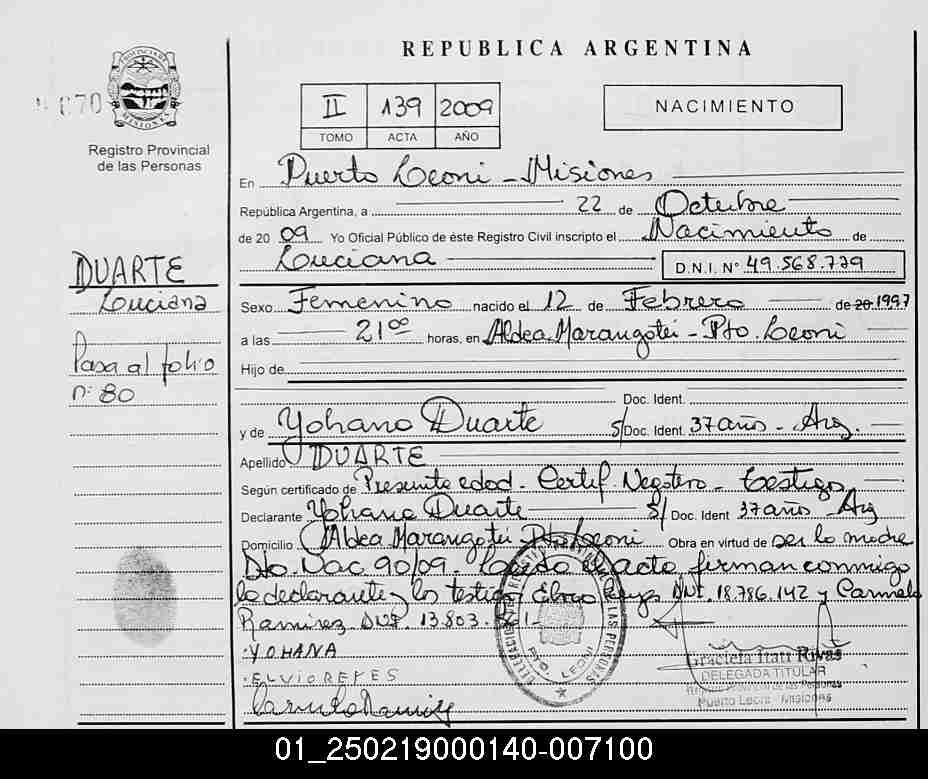 REPUBLICA ARGENTINA
PROVINCIA DE MISIONES
070
Registro Provincial
de las Personas
II 139 2009
TOMO ACTA AÑO
NACIMIENTO
En Puerto Leoni - Misiones
República Argentina, a 22 de Octubre
de 2009 Yo Oficial Público de éste Registro Civil inscripto el Nacimiento de
Luciana D.N.I. Nº 49.568.729
DUARTE
Luciana
Pasa al folio
nº 80
Sexo Femenino nacido el 12 de Febrero de 20 1997
a las 21 00 horas, en Aldea Marangatú - Pto. Leoni
Hijo de
Doc. Ident.
y de Yohana Duarte S/ Doc. Ident. 37 años - Arg.
Apellido DUARTE
Según certificado de Presunta edad - Certif. Negativo - Testigos
Declarante Yohana Duarte S/ Doc. Ident 37 años - Arg
Domicilio Aldea Marangatú Pto Leoni Obra en virtud de ser la madre
Dto. Nac 90/09. Leída el acta firman conmigo
la declarante y los testigos Elvio Reyes DNI. 18.786.142 y Carmelo
Ramirez DNI. 13.803.
YOHANA
ELVIO REYES
Carmelo Ramirez
DELEGACION PROVINCIAL DE LAS PERSONAS
PTO. LEONI
Graciela Itatí Rivas
DELEGADA TITULAR
Registro Provincial de las Personas
Puerto Leoni - Misiones
01_250219000140-007100